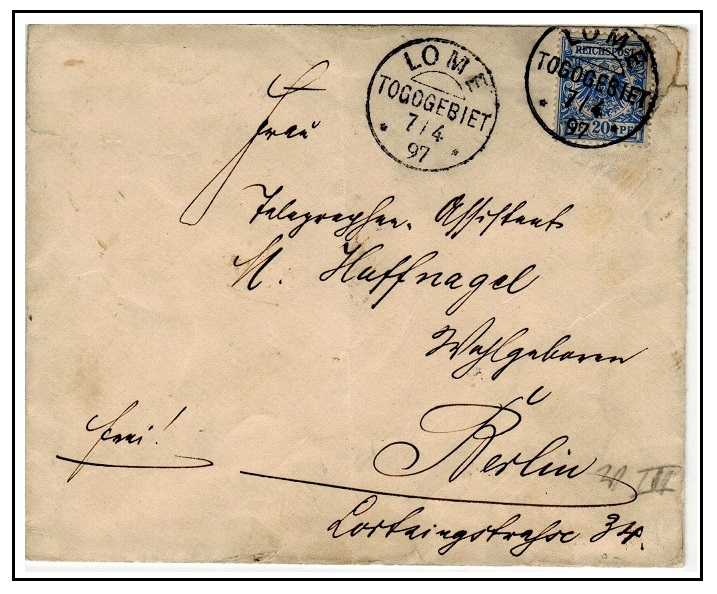 LOME
TOGOGEBIET
7/4
97
LOME
TOGOGEBIET
7/4
97
REICHSPOST
20 PF
Frau
Telegraphen-Assistent
H. Haffnagel
Wohlgeboren
Berlin
III
Lortzingstraße 34.
frei!